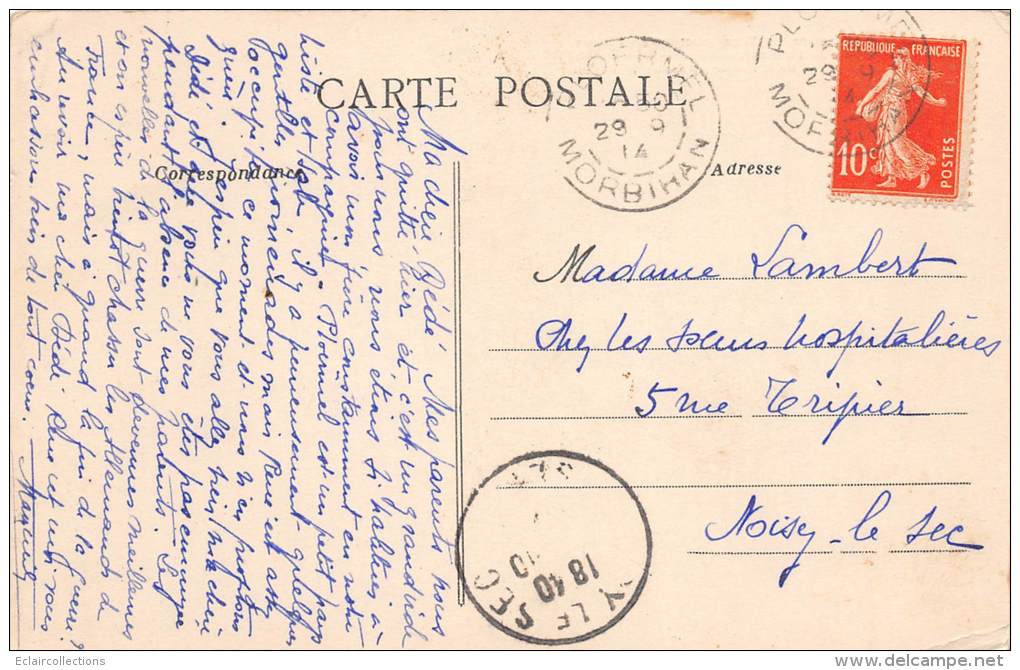 CARTE POSTALE
Correspondance
Adresse
PLOERMEL
29 9
14
MORBIHAN
PLO
MEL
29 9
MORBIHAN
REPUBLIQUE FRANÇAISE
10c
POSTES
Madame Lambert
Chez les sœurs hospitalières
5 rue Tripier
Noisy-le-Sec
Y LE SEC
18 40
10
Ma chère Dédé. Mes parents nous
ont quitté hier et c'est un grand vide
pour nous, nous étions si habitués à
avoir mon frère constamment en notre
compagnie. Ploërmel est un petit pays
triste et sale, il y a heureusement quelques
gentilles promenades mais René est assez
occupé en ce moment et nous n'en profitons
guère. J'espère que vous allez bien, ma chère
Dédé et que vous ne vous êtes pas ennuyée
pendant l'absence de mes parents. Les
nouvelles de la guerre sont devenues meilleures
et on espère bientôt chasser les Allemands de
France, mais à quand la fin de la guerre ?
Au revoir ma chère Dédé. René et moi vous
embrassons bien de tout cœur.
Eclaircollections
www.delcampe.net